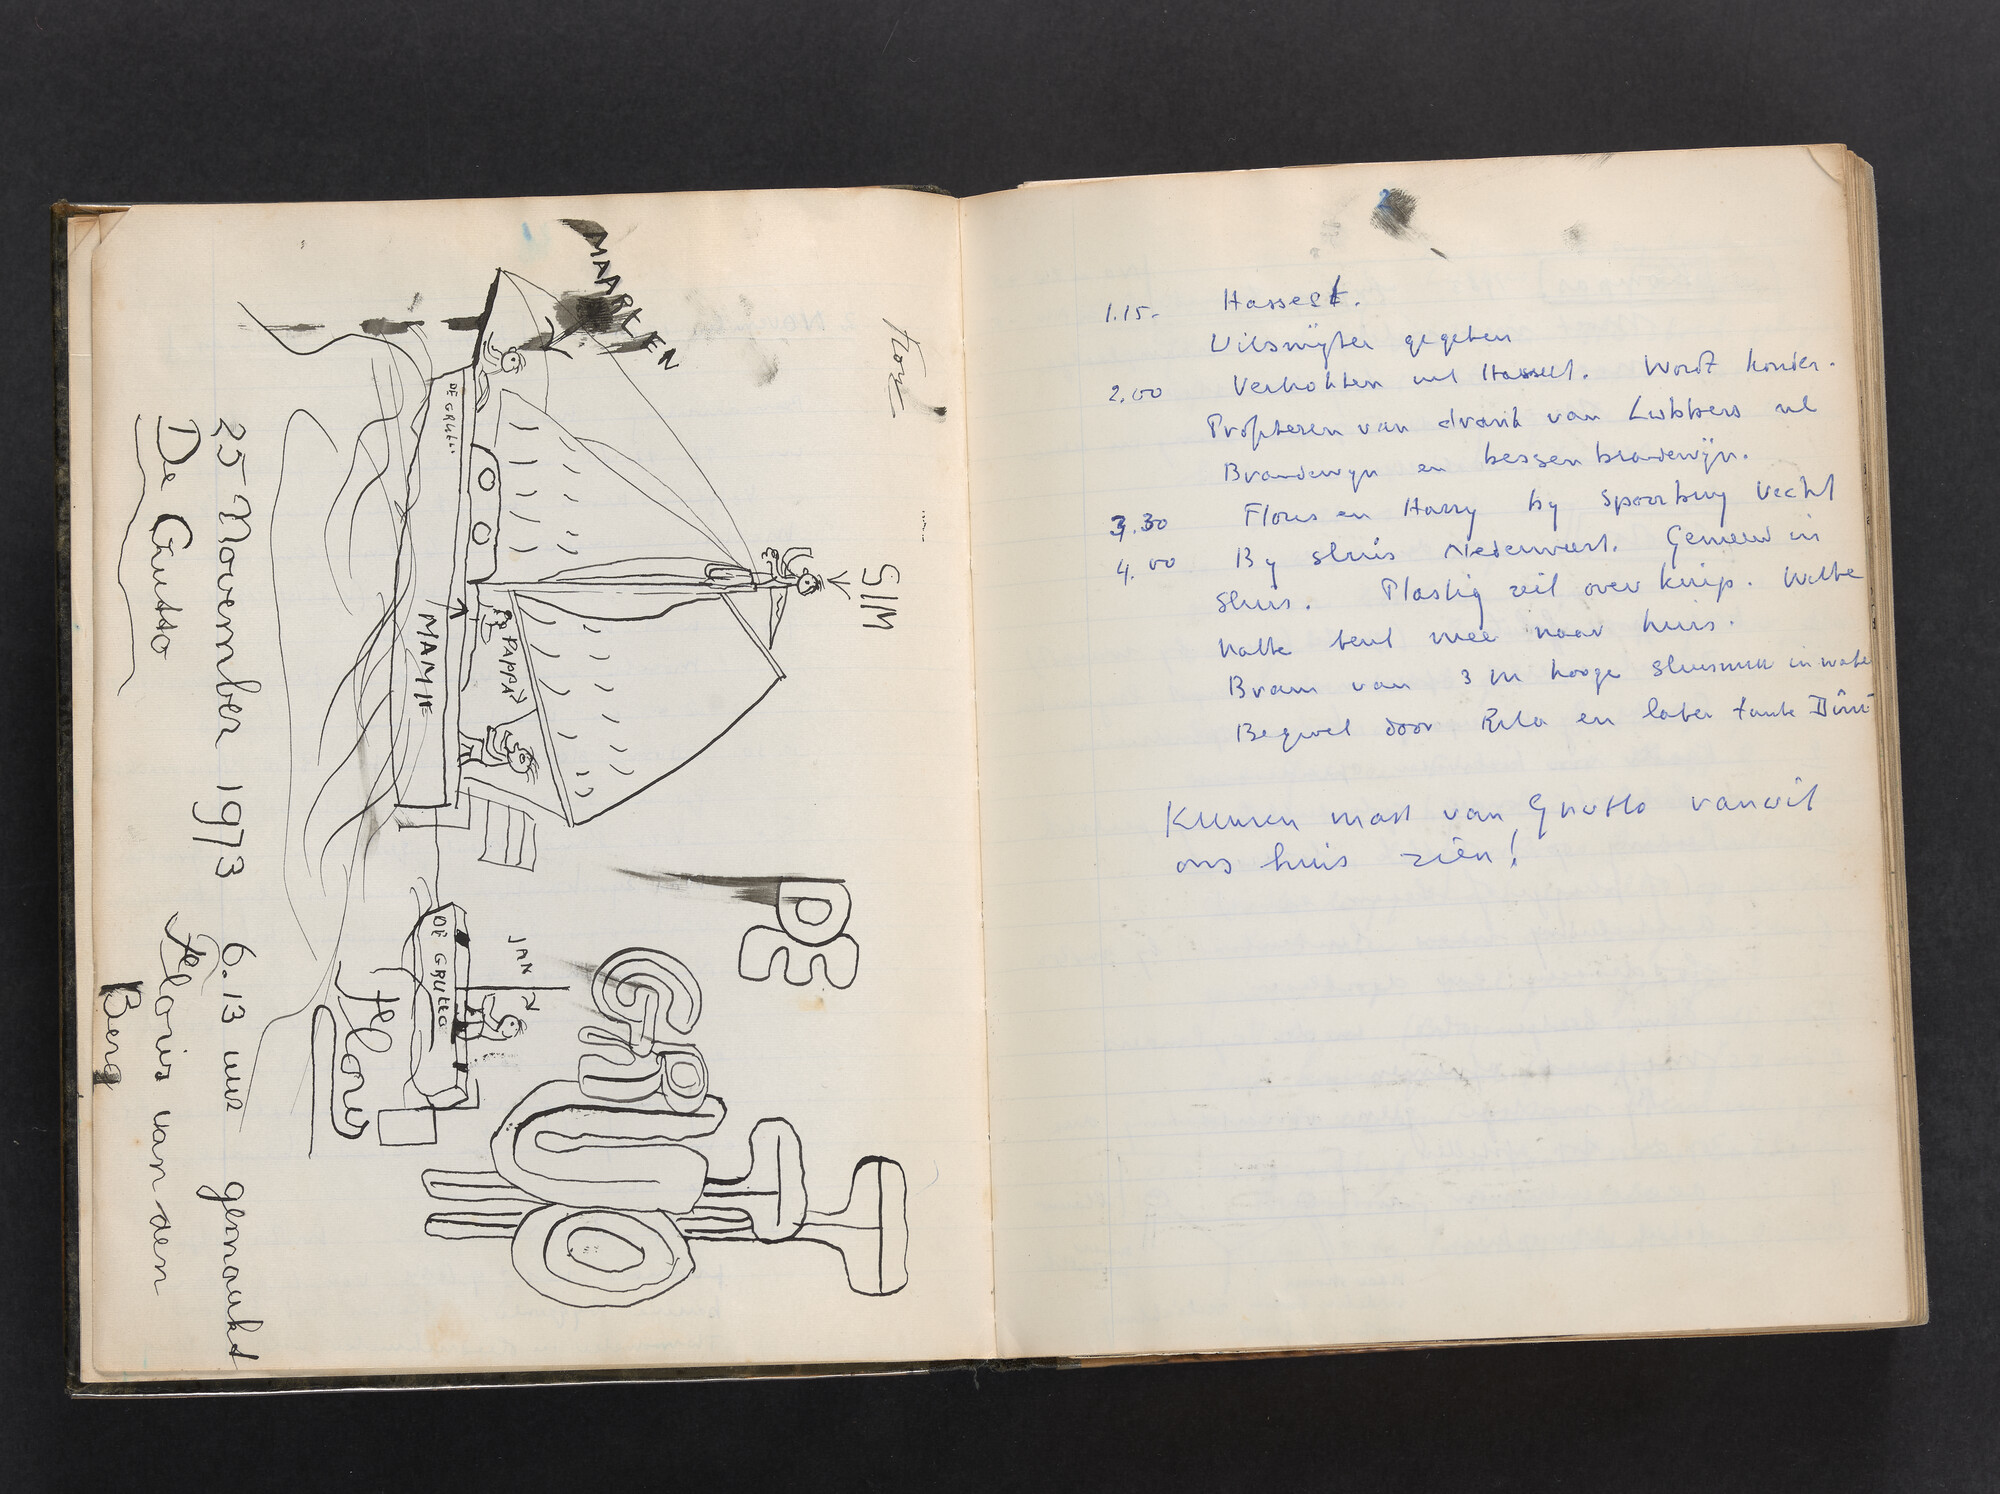 MAARTEN
SIM
DE GRUTTO
MAMIE
PAPPA
JAN
DE GRUTTO
Floris
DE
GRUTTO
25 November 1973 6.13 uur gemaakt
De Grutto
Floris van den
Berg
2
1.15. Hasselt.
Uitsmijter gegeten
2.00 Vertrokken uit Hasselt. Wordt kouder.
Profiteren van drank van Lubbers nl
Brandewijn en bessenbrandewijn.
3.30 Floris en Harry by spoorbrug Vecht
4.00 By sluis Nederweert. Gemeerd in
sluis. Plastig zeil over kuip.
natte tent mee naar huis.
Bram van 3 m hooge sluismuur in water
door Rita en later tante
Kunnen mast van Grutto vanuit
ons huis zien!